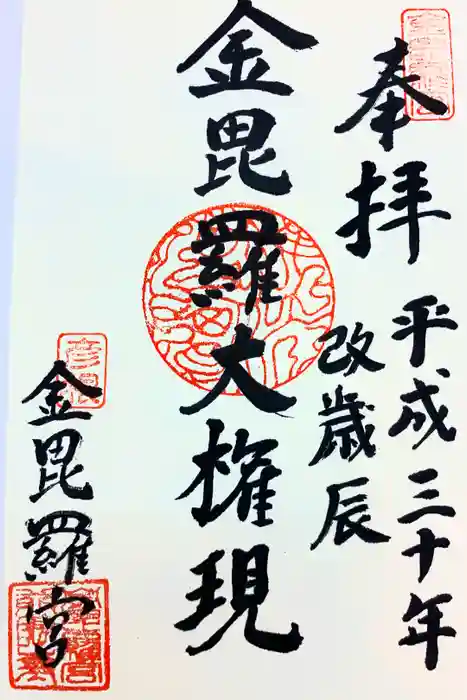 奉拝
平成三十年
改歳辰
金毘羅大権現
彦根
金毘羅宮